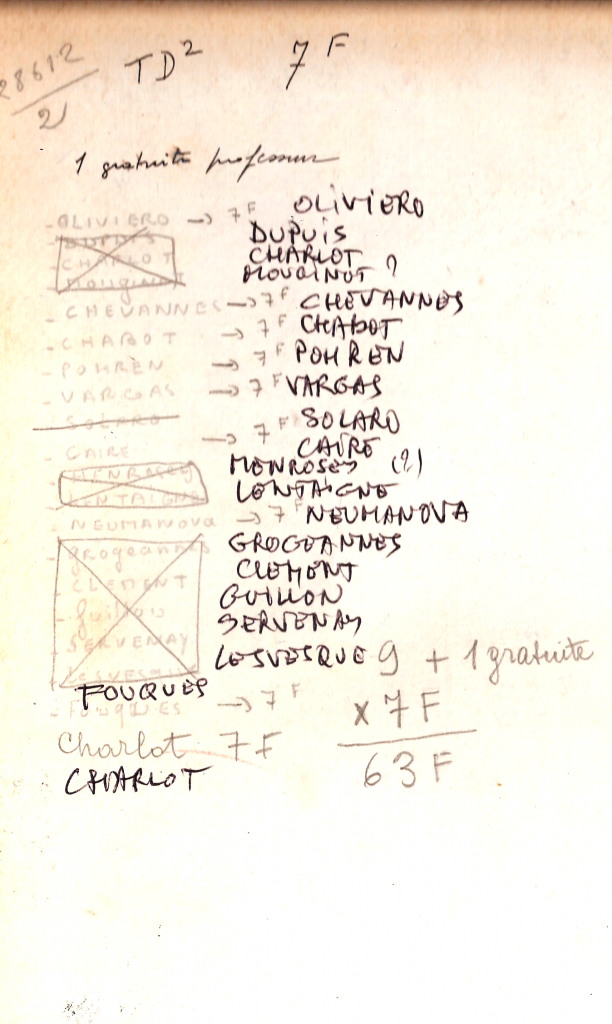 28612
2
TD² 7F
1 gratuité professeur
- OLIVIERO → 7F OLIVIERO
- DUPUIS DUPUIS
- CHARLOT CHARLOT
- Mouginot MOUGINOT ?
- CHEVANNES → 7F CHEVANNES
- CHABOT → 7F CHABOT
- POHREN → 7F POHREN
- VARGAS → 7F VARGAS
- SOLARO SOLARO
- CAIRE → 7F CAIRE
- MENROSEY MENROSES (?)
- LENTAIGNE LENTAIGNE
- NEUMANOVA → 7F NEUMANOVA
- grogeannes GROGEANNES
- CLEMENT CLEMENT
- guillon GUILLON
- SERVENAY SERVENAY
- LESVESQUE LESVESQUE 9 + 1 gratuite
FOUQUES
- FOUQUES → 7F x 7F
Charlot 7F 63F
CHARLOT